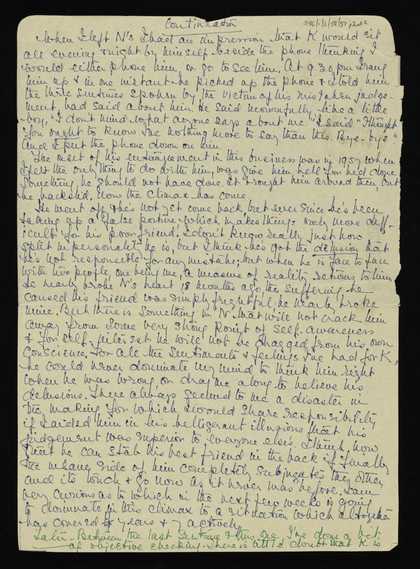 Continuation
When I left N's I had an impression that K would sit
all evening & night by himself beside the phone thinking I
would either phone him or go to see him. At 9.30pm I rang
him up & in one instant he picked up the phone & I told him
the three sentences spoken by the victim of his mistaken judge-
ment, had said about him. He said mournfully like a little
boy, "I don't mind what anyone says about me" & I said "I thought
you ought to know I've nothing more to say than this. Bye-bye"
And I put the phone down on him
The next of his entanglement in this business was in 1957 when
I felt the only thing to do with him was give him hell for he'd done
something he should not have done. It brought him around then but
he backslid. Now the climax has come.
He went off & he's not yet come back but ever since he's been
taking up a false posture which makes things much more diff-
icult for his poor friend. I don't know really just how
split in personality he is, but I think he's got the delusion that
he's not responsible for any mistake, but when he is face to face
with two people, one being me, a measure of reality returns to him.
He nearly broke N's heart 18 months ago, the suffering he
caused his friend was simply frightful, he nearly broke
mine. But there is something in N that will not crack him
away from some very strong point of self-awareness
& for self-interest he will not be dragged from his own
conscience. For all the sentiments & feelings I've had for K,
he could never dominate my mind to think him right
when he was wrong or drag me along to believe his
delusions. There always seemed to me a disaster in
the making for which I would share responsibility
if I aided him in his belligerent illusions that his
judgement was superior to everyone else's. I thought how
that he can stab his best friend in the back if finally
the insane side of him completely subjugates the other
and it's touch & go now as it never was before. I am
very curious as to which in the next few weeks is going
to dominate in this climax to a situation which altogether
has covered 8 years & 7 actively.
Later. Between the last sentence & this one, I've done a bit
of objective checking. There is little doubt that K is